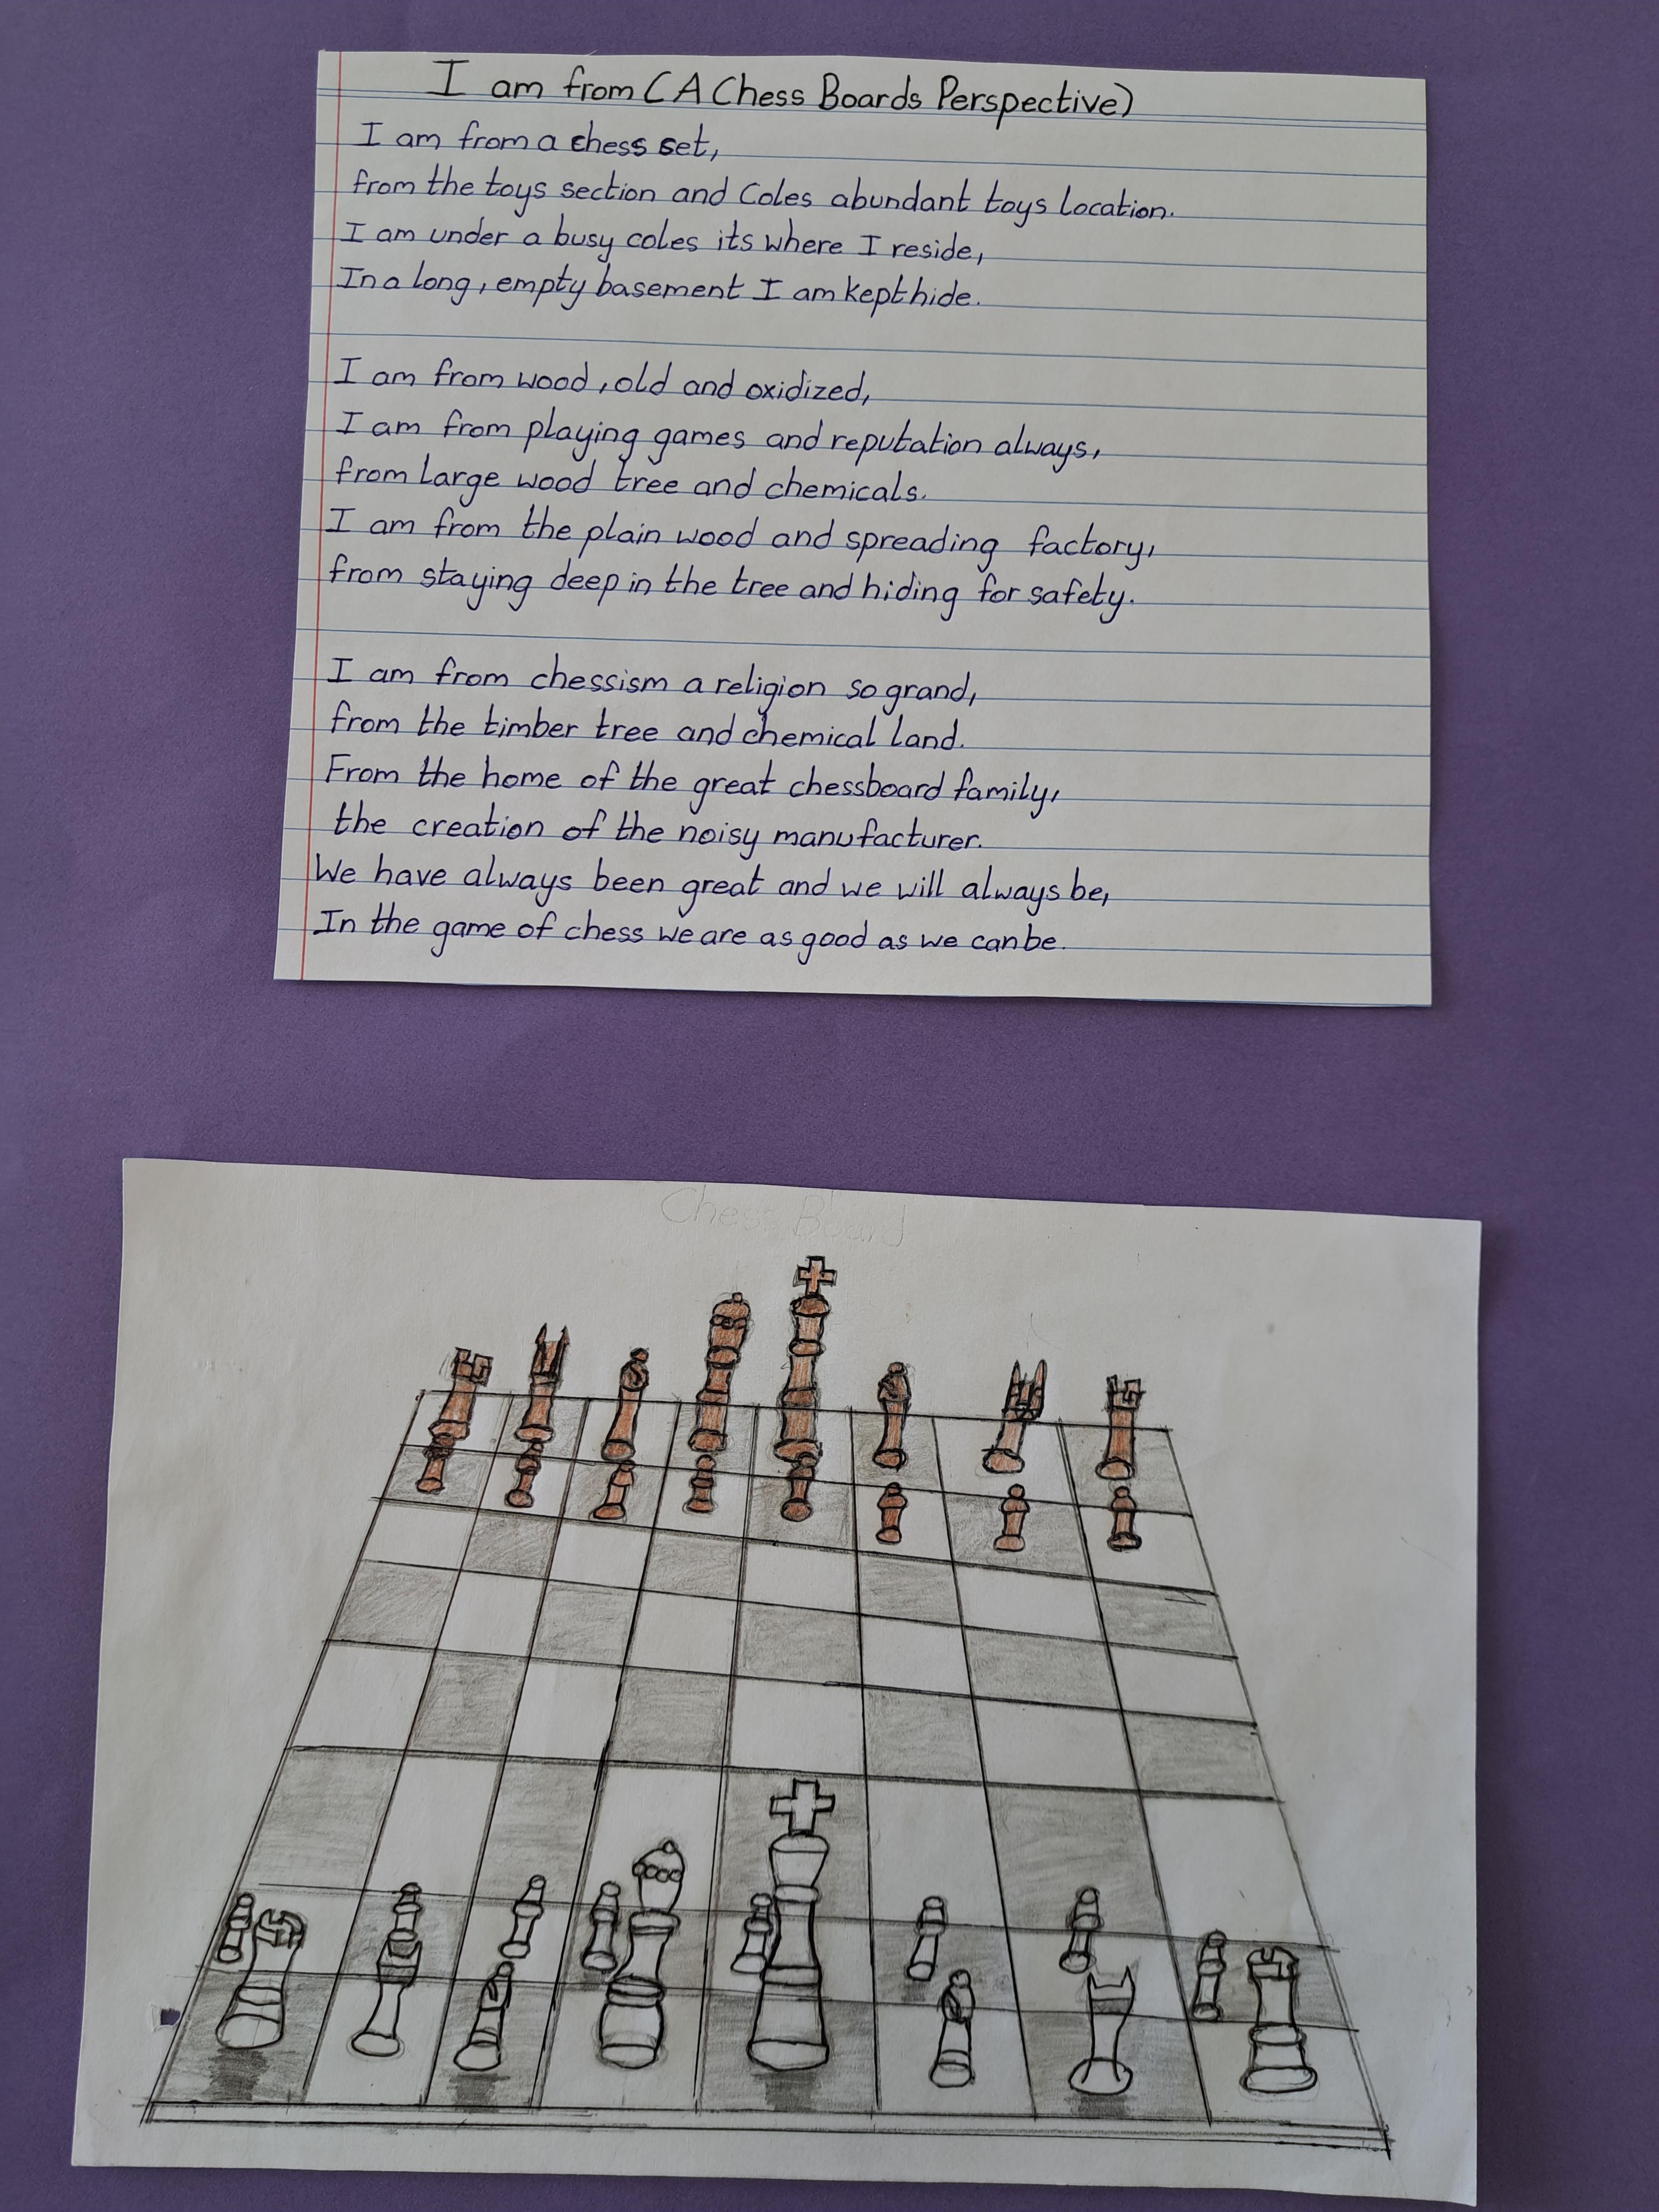 I am from (A Chess Boards Perspective)
I am from a chess set,
from the toys section and Coles abundant toys location.
I am under a busy coles its where I reside,
In a long, empty basement I am kept hide.
I am from wood, old and oxidized,
I am from playing games and reputation always,
from large wood tree and chemicals.
I am from the plain wood and spreading factory,
from staying deep in the tree and hiding for safety.
I am from chessism a religion so grand,
from the timber tree and chemical land.
From the home of the great chessboard family,
the creation of the noisy manufacturer.
We have always been great and we will always be,
In the game of chess we are as good as we can be.
Chess Board